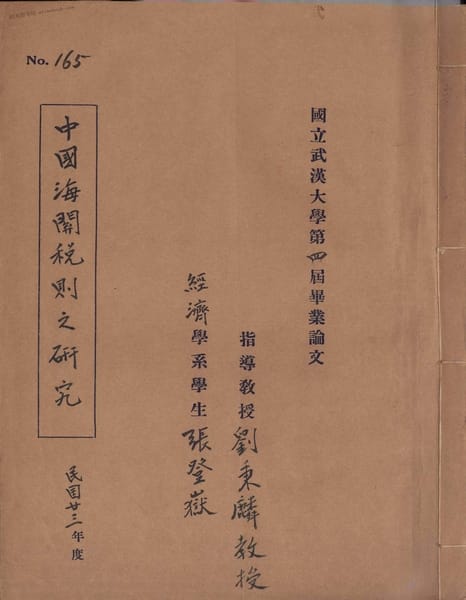 No. 165
國立武漢大學第四屆畢業論文
指導教授劉秉麟教授
經濟學系學生張登嶽
中國海關稅則之研究
民国廿三年度